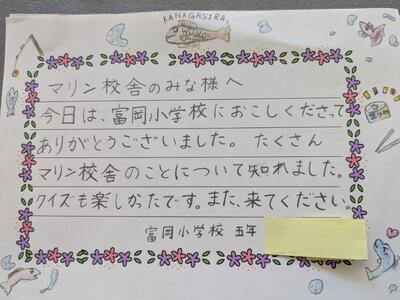 KANAGASIRA
マリン校舎のみな様へ
今日は、富岡小学校におこしくださって
ありがとうございました。たくさん
マリン校舎のことについて知れました。
クイズも楽しかったです。また、来てください。
富岡小学校 五年